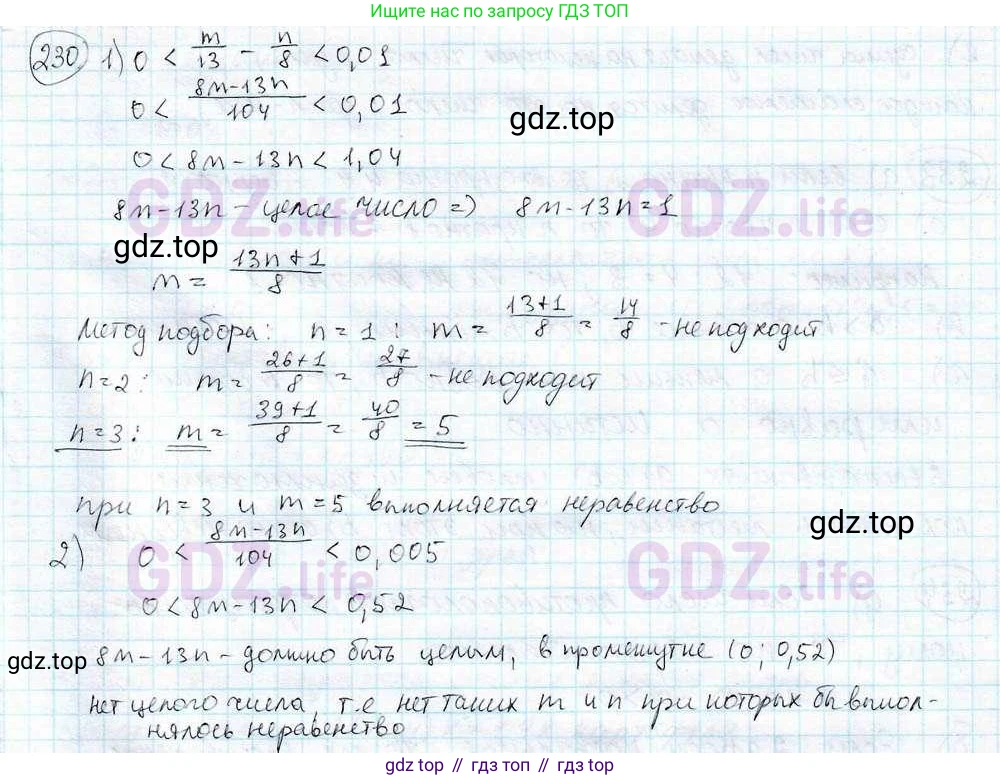 Ищите нас по запросу ГДЗ ТОП
230 1) 0 < m/13 - n/8 < 0,01
0 < (8m-13n)/104 < 0,01
gdz.top
0 < 8m - 13n < 1,04
8m - 13n - целое число => 8m - 13n = 1
GDZ.life GDZ.life
gdz.top
m = (13n + 1)/8
Метод подбора: n = 1 : m = (13+1)/8 = 14/8 - не подходит
n = 2 : m = (26+1)/8 = 27/8 - не подходит
n = 3 : m = (39+1)/8 = 40/8 = 5
при n = 3 и m = 5 выполняется неравенство
gdz.top
2) 0 < (8m-13n)/104 < 0,005
GDZ.life GDZ.life
0 < 8m - 13n < 0,52
gdz.top
8m - 13n - должно быть целым, в промежутке (0; 0,52)
нет целого числа, т.е нет таких m и n при которых бы выпол-
нялось неравенство
gdz.top // гдз топ // gdz top